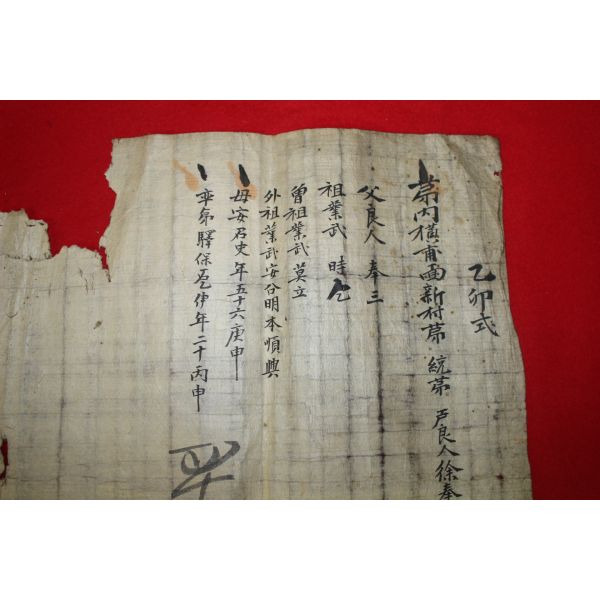 乙卯式
第內橫甫面新村第 統第 戶良人徐奉
父良人 奉三
祖業武 時
曾祖業武 莫立
外祖業武安分明本順興
母安召史年五十六庚申
率弟驛保 年二十丙申